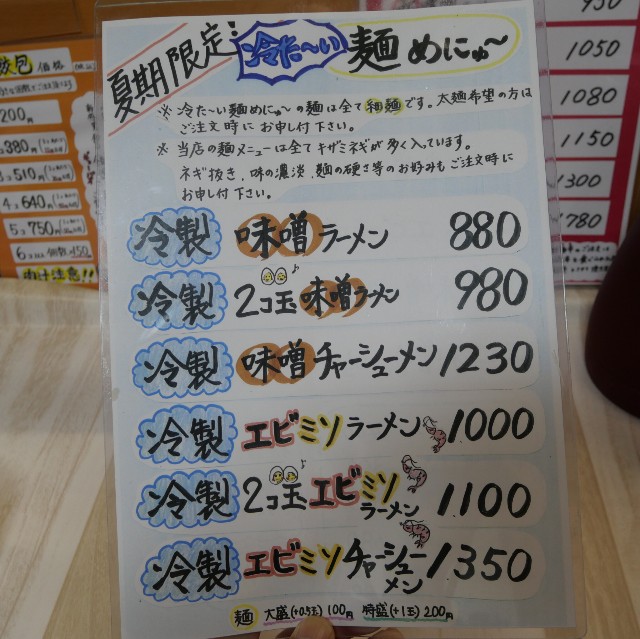 夏期限定: 冷た〜い 麺めにゅ〜
※ 冷た〜い麺めにゅ〜の麺は全て細麺です。太麺希望の方は
ご注文時にお申し付下さい。
※ 当店の麺メニューは全てキザミネギが多く入っています。
ネギ抜き、味の濃淡、麺の硬さ等のお好みもご注文時に
お申し付下さい。
冷製 味噌ラーメン 880
冷製 2コ玉味噌ラーメン 980
冷製 味噌チャーシューメン 1230
冷製 エビミソラーメン 1.000
冷製 2コ玉エビミソラーメン 1.100
冷製 エビミソチャーシューメン 1350
麺 大盛(+0.5玉)100円 特盛(+1玉)200円
包 価格
200円
380円
3コ510円
4コ640円
5コ750円
6コ以上 個数×150
肉汁注意!!
950
1050
1080
1150
1300
1780